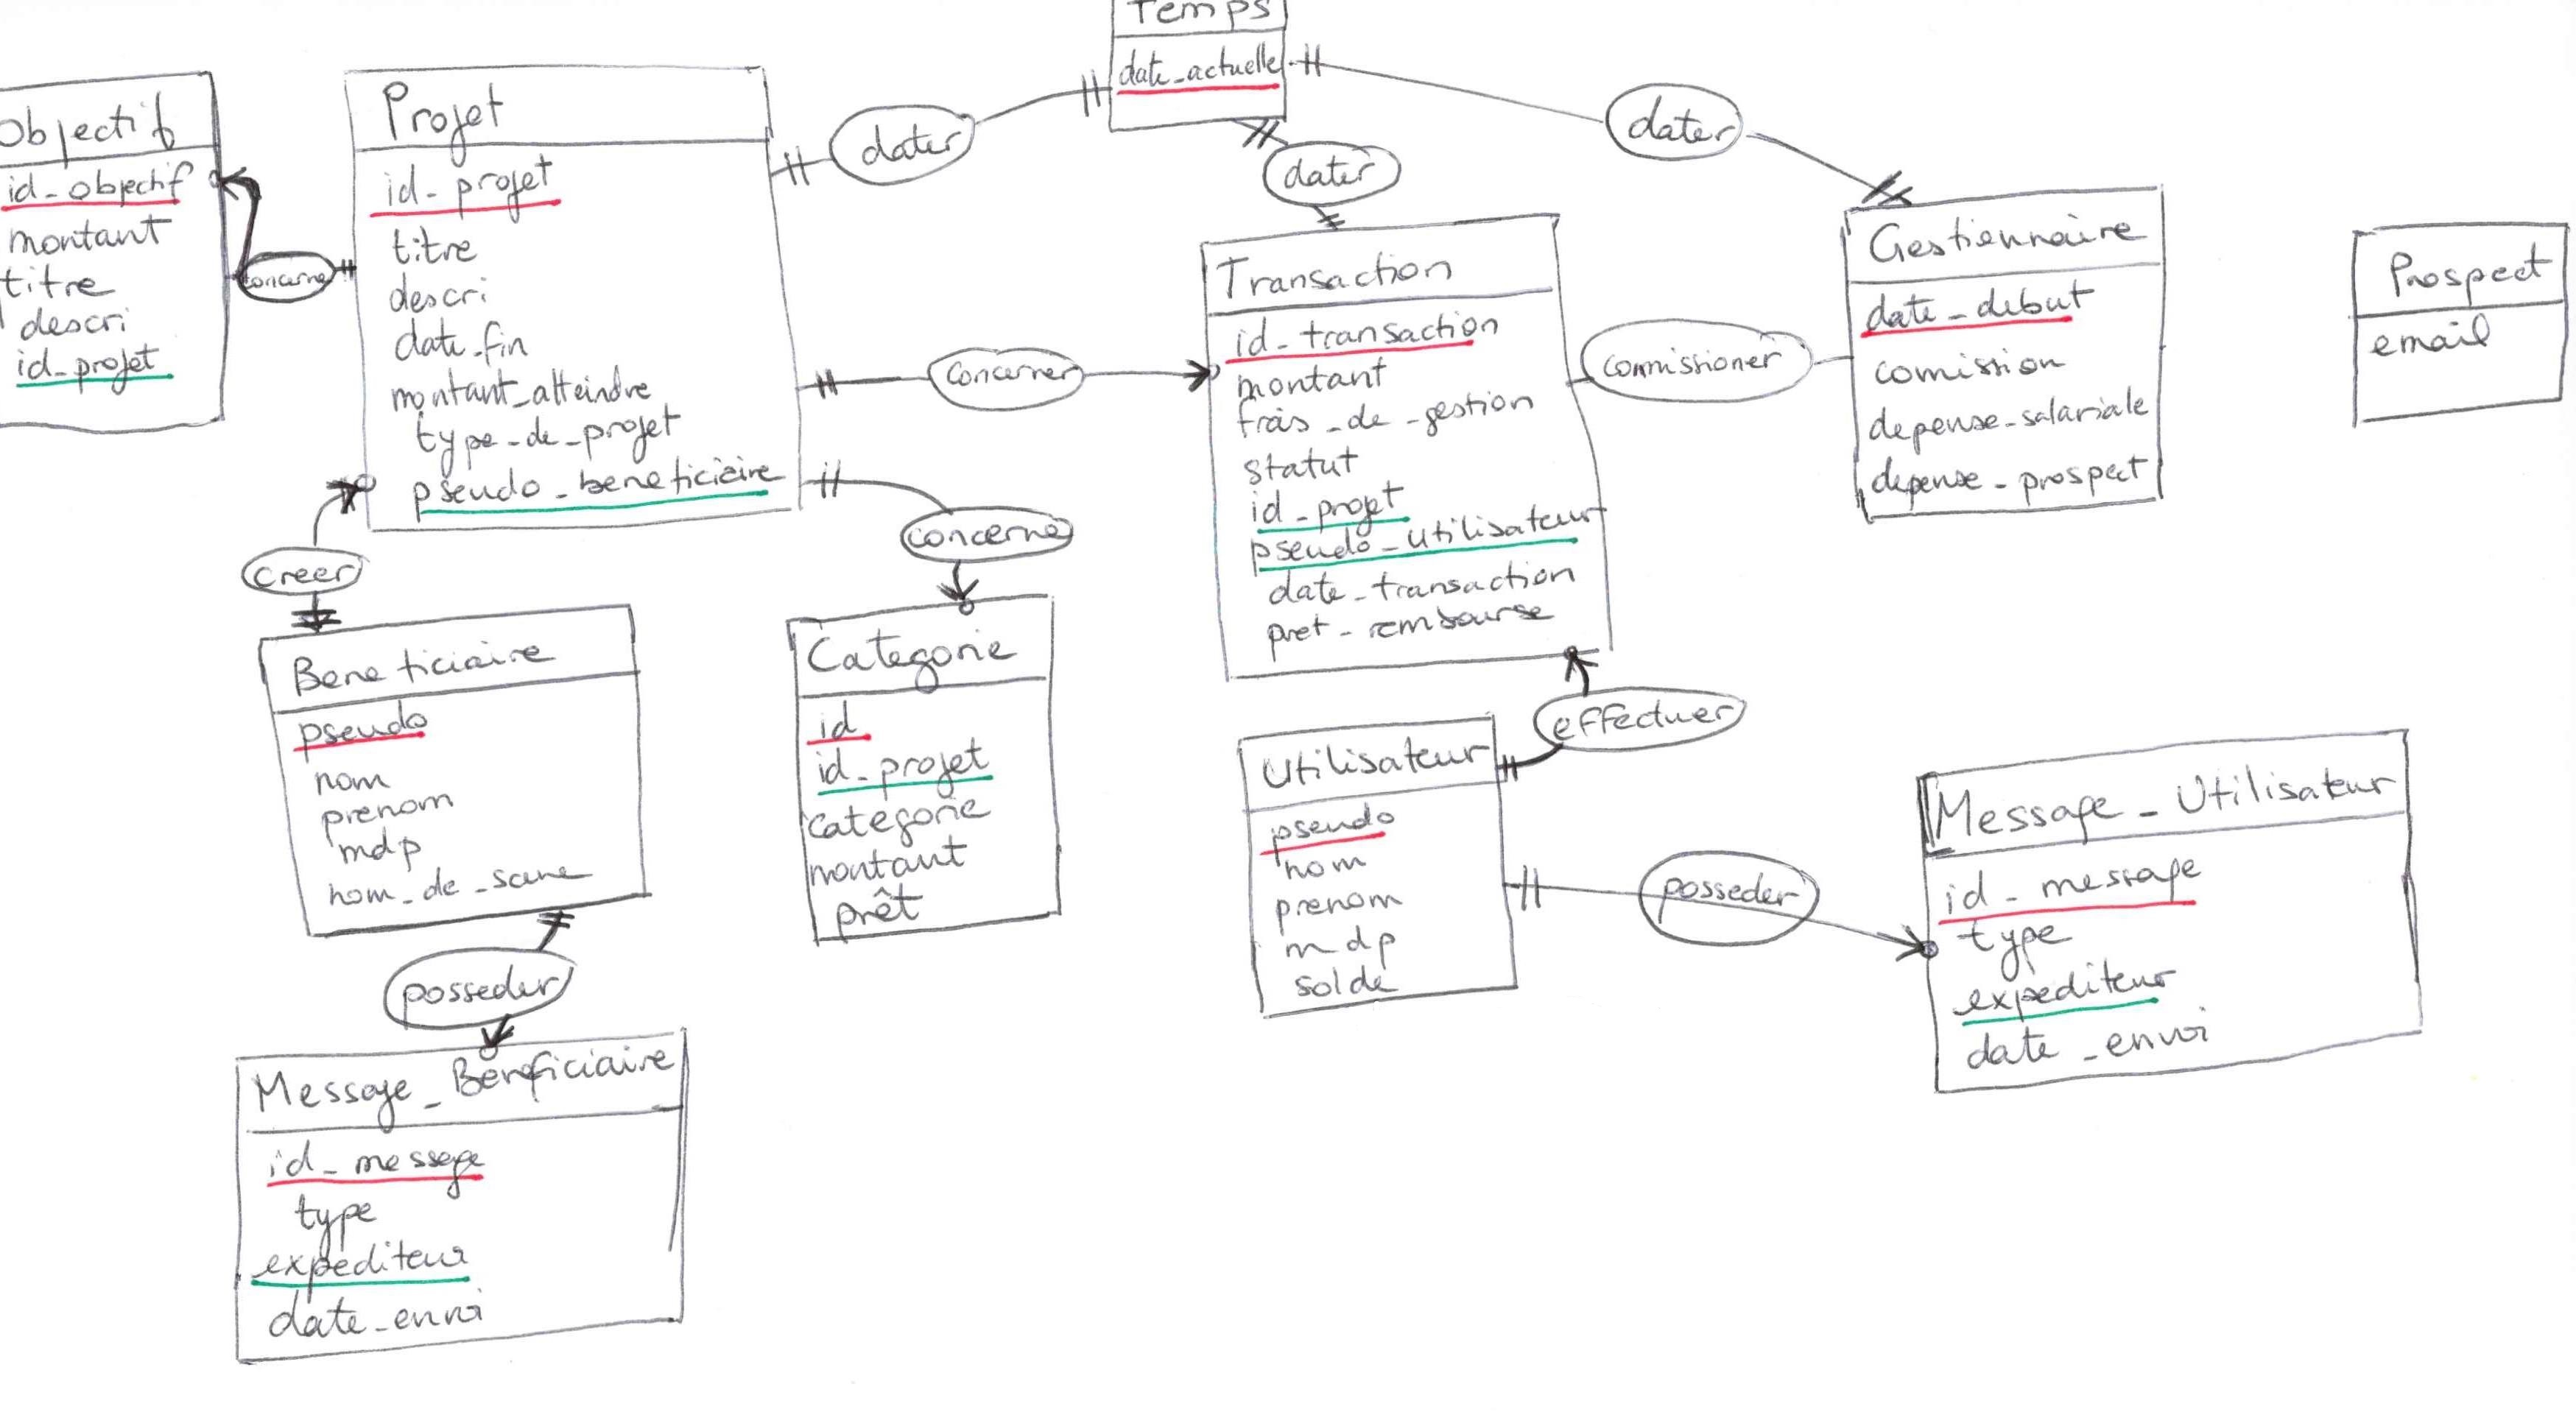 Temps
date_actuelle
Objectif
id_objectif
montant
titre
descri
id_projet
concerne
Projet
id_projet
titre
descri
date_fin
montant_atteindre
type_de_projet
pseudo_beneficiaire
dater
dater
dater
Concerner
concerne
creer
Transaction
id_transaction
montant
frais_de_gestion
statut
id_projet
pseudo_utilisateur
date_transaction
pret_rembourse
commissioner
Gestionnaire
date_debut
comission
depense_salariale
depense_prospect
Prospect
email
Beneficiaire
pseudo
nom
prenom
mdp
nom_de_scene
Categorie
id
id_projet
categorie
montant
prêt
effectuer
Utilisateur
pseudo
nom
prenom
mdp
solde
posseder
Message_Utilisateur
id_message
type
expediteur
date_envoi
posseder
Message_Beneficiaire
id_message
type
expediteur
date_envoi